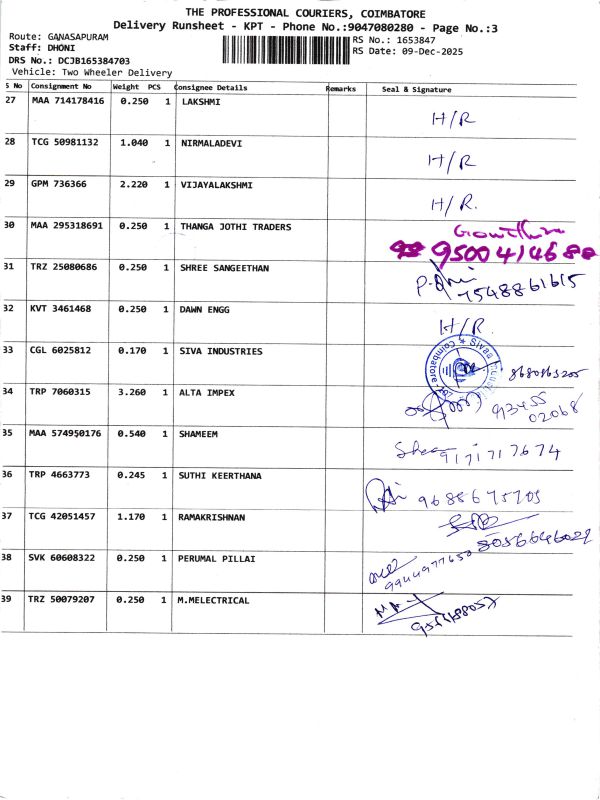 THE PROFESSIONAL COURIERS, COIMBATORE
Delivery Runsheet - KPT - Phone No.:9047080280 - Page No.:3
Route: GANASAPURAM
RS No.: 1653847
Staff: DHONI
RS Date: 09-Dec-2025
DRS No.: DCJB165384703
Vehicle: Two Wheeler Delivery
S No Consignment No Weight PCS Consignee Details Remarks Seal & Signature
27 MAA 714178416 0.250 1 LAKSHMI H/R
28 TCG 50981132 1.040 1 NIRMALADEVI H/R
29 GPM 736366 2.220 1 VIJAYALAKSHMI H/R.
30 MAA 295318691 0.250 1 THANGA JOTHI TRADERS
31 TRZ 25080686 0.250 1 SHREE SANGEETHAN 7548861615
32 KVT 3461468 0.250 1 DAWN ENGG H/R.
33 CGL 6025812 0.170 1 SIVA INDUSTRIES
34 TRP 7060315 3.260 1 ALTA IMPEX 93455
02068
35 MAA 574950176 0.540 1 SHAMEEM 9171717674
36 TRP 4663773 0.245 1 SUTHI KEERTHANA
37 TCG 42051457 1.170 1 RAMAKRISHNAN
38 SVK 60608322 0.250 1 PERUMAL PILLAI 9944977650
39 TRZ 50079207 0.250 1 M.MELECTRICAL